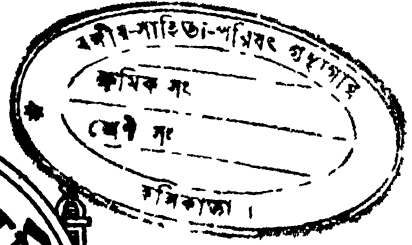 বঙ্গীয়-সাহিত্য-পরিষৎ গ্রন্থাগার
ক্রমিক সং
শ্রেণী সং
কলিকাতা ।